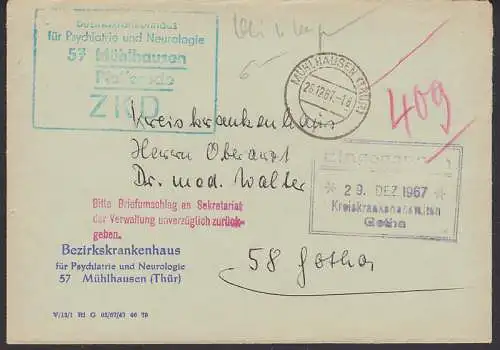 Bezirkskrankenhaus
für Psychiatrie und Neurologie
57 Mühlhausen
Pfafferode
ZKD
MÜHLHAUSEN (THÜR)
28.12.67.-18
409
Kreiskrankenhaus
Herrn Oberarzt
Dr. med. Walter
58 Gotha
Eingegangen
* 29. DEZ. 1967 *
Gotha
Bitte Briefumschlag an Sekretariat
der Verwaltung unverzüglich zurück-
geben.
Bezirkskrankenhaus
für Psychiatrie und Neurologie
57 Mühlhausen (Thür)